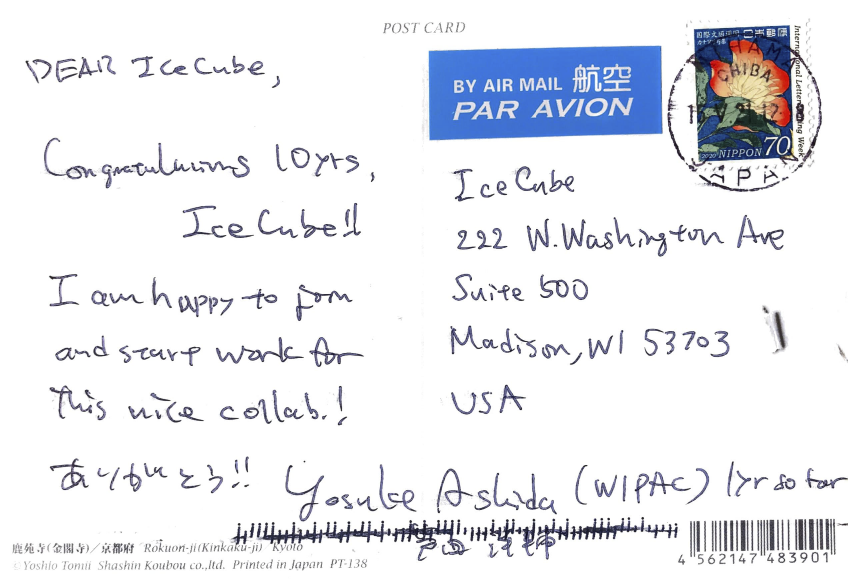 POST CARD
DEAR IceCube,
Congratulations 10yrs,
IceCube!!
I am happy to join
and start work for
this nice collab.!
ありがとう!!
Yosuke Ashida (WIPAC) 1yr so far
BY AIR MAIL 航空
PAR AVION
国際文通週間
日本郵便
International Letter Writing Week
2020 NIPPON 70
CHIBA
JAPAN
IceCube
222 W.Washington Ave
Suite 500
Madison, WI 53703
USA
鹿苑寺(金閣寺)/京都府 Rokuon-ji(Kinkaku-ji) Kyoto
©Yoshio Tomii Shashin Koubou co.,ltd. Printed in Japan PT-138
4 562147 483901